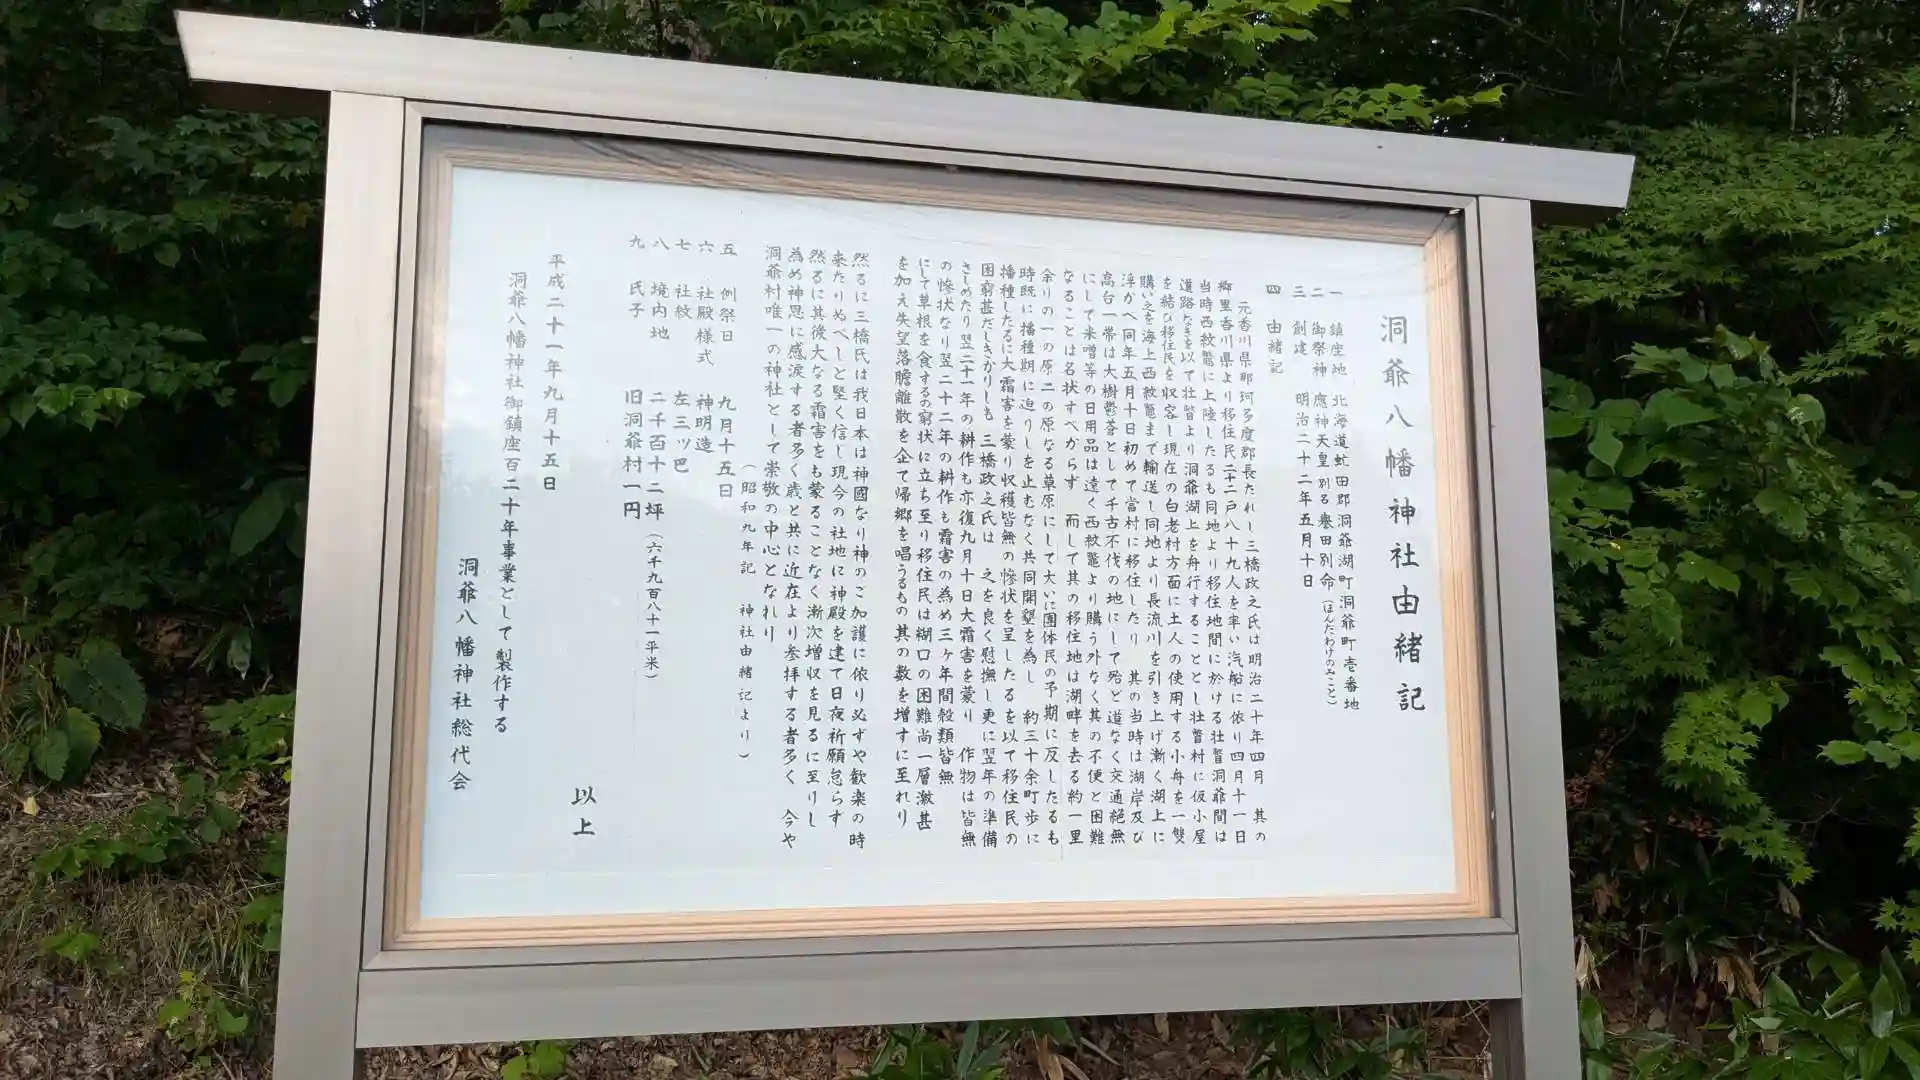 洞爺八幡神社由緒記
一 鎮座地 北海道虻田郡洞爺湖町洞爺町壱番地
二 御祭神 應神天皇 別る誉田別命(ほんだわけのみこと)
三 創建 明治二十二年五月十日
四 由緒記
元香川県那珂多度郡長たれし三橋政之氏は明治二十年四月 其の
郷里香川県より移住民二十二戸八十九人を率い汽船に依り四月十一日
当時西紋鼈に上陸したるも同地より移住地間に於ける壮瞥洞爺間は
道路なきを以て壮瞥より洞爺湖上を舟行することとし壮瞥村に仮小屋
を結ひ移住民を収容し現在の白老村方面に土人の使用する小舟を一雙
購い之を海上西紋鼈まで輸送し同地より長流川を引き上げ漸く湖上に
浮かべ同年五月十日初めて當村に移住したり 其の当時は湖岸及び
高台一帯は大樹鬱蒼として千古不伐の地にして殆ど道なく交通絶無
にして米噌等の日用品は遠く西紋鼈より購う外なく其の不便と困難
なることは名状すべからず 而して其の移住地は湖畔を去る約一里
余りの一の原二の原なる草原にして大いに團体民の予期に反したるも
時既に播種期に迫りしを止むなく共同開墾を為し 約三十余町歩に
播種したるに大霜害を蒙り収穫皆無の惨状を呈したるを以て移住民の
困窮甚だしきかりしも 三橋政之氏は 之を良く慰撫し更に翌年の準備
さしめたり翌二十一年の耕作も亦復九月十日大霜害を蒙り 作物は皆無
の惨状なり翌二十二年の耕作も霜害の為め三ヶ年間穀類皆無
にして草根を食するの窮状に立ち至り移住民は糊口の困難尚一層激甚
を加え失望落膽離散を企て帰郷を唱うるもの其の数を増すに至れり
然るに三橋氏は我日本は神國なり神のご加護に依り必ずや歓楽の時
来たりぬべしと堅く信し現今の社地に神殿を建て日夜祈願怠らす
然るに其後大なる霜害をも蒙ることなく漸次増収を見るに至りし
為め神恩に感涙する者多く歳と共に近在より参拝する者多く 今や
洞爺村唯一の神社として崇敬の中心となれり
(昭和九年記 神社由緒記より)
五 例祭日 九月十五日
六 社殿様式 神明造
七 社紋 左三ッ巴
八 境内地 二千百十二坪(六千九百八十一平米)
九 氏子 旧洞爺村一円
以上
平成二十一年九月十五日
洞爺八幡神社御鎮座百二十年事業として製作する
洞爺八幡神社総代会